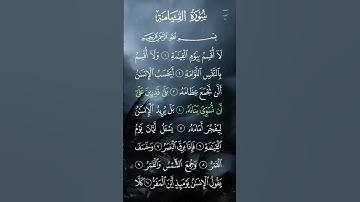 سُورَةُ القِيَامَةِ
بِسْمِ اللَّهِ الرَّحْمَٰنِ الرَّحِيمِ
لَا أُقْسِمُ بِيَوْمِ الْقِيَامَةِ ١ وَلَا أُقْسِمُ
بِالنَّفْسِ اللَّوَّامَةِ ٢ أَيَحْسَبُ الْإِنسَانُ
أَلَّن نَّجْمَعَ عِظَامَهُ ٣ بَلَىٰ قَادِرِينَ عَلَىٰ
أَن نُّسَوِّيَ بَنَانَهُ ٤ بَلْ يُرِيدُ الْإِنسَانُ
لِيَفْجُرَ أَمَامَهُ ٥ يَسْأَلُ أَيَّانَ يَوْمُ
الْقِيَامَةِ ٦ فَإِذَا بَرِقَ الْبَصَرُ ٧ وَخَسَفَ
الْقَمَرُ ٨ وَجُمِعَ الشَّمْسُ وَالْقَمَرُ ٩
يَقُولُ الْإِنسَانُ يَوْمَئِذٍ أَيْنَ الْمَفَرُّ ١٠ كَلَّا